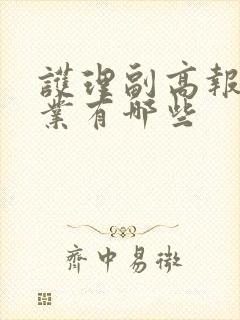 護理副高報
業有哪些
齊中易微